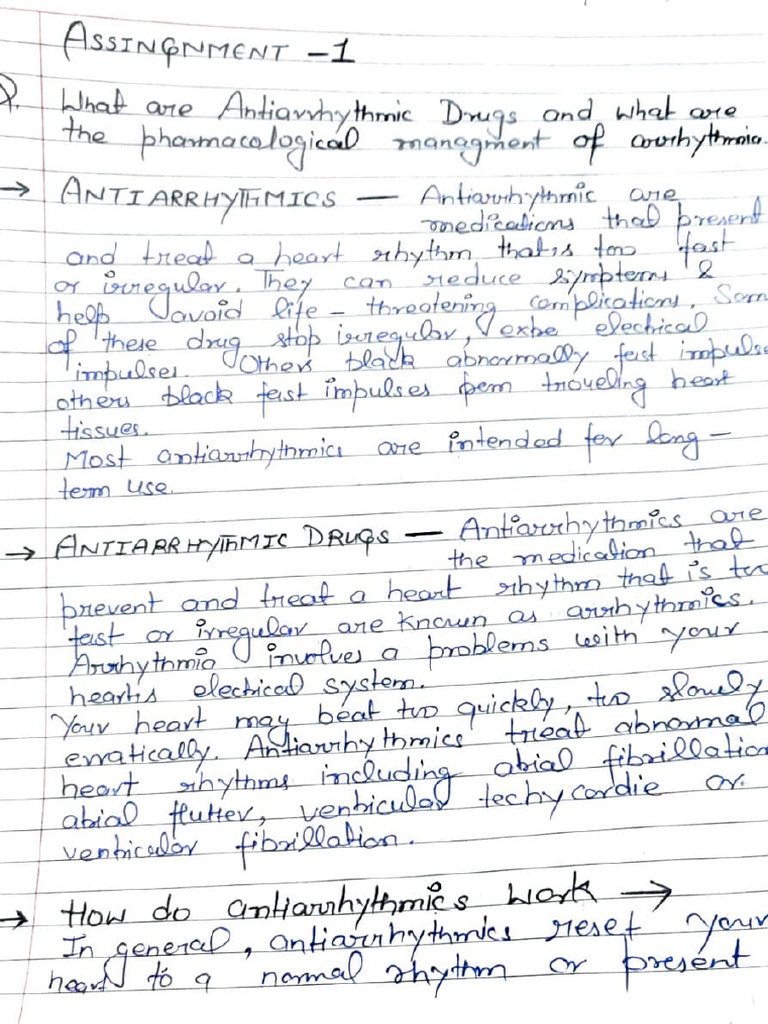 ASSINGNMENT -1
Q. What are Antiarrhythmic Drugs and what are
the pharmacological managment of arrhythmia.
→ ANTIARRHYTHMICS — Antiarrhythmic are
medications that present
and treat a heart rhythm that is too fast
or irregular. They can reduce symptems &
help avoid life - threatening complications. Som
of these drug stop irregular, electrical
impulses. Others black abnormally fast impulse
others black fast impulses traveling heart
tissues.
Most antiarrhythmics are intended for long -
term use.
→ ANTIARRHYTHMIC DRUGS — Antiarrhythmics are
the medication that
prevent and treat a heart rhythm that is too
fast or irregular are known as arrhythmics.
Arrhythmia involves a problems with your
heartis electrical system.
Your heart may beat too quickly, too slowely
erratically. Antiarrhythmics treat abnormal
heart rhythms including abial fibrillation
abial flutter, ventricular techycordie or
ventricular fibrillation.
→ How do antiarrhythmics work →
In general, antiarrhythmics reset your
heart to a normal rhythm or present